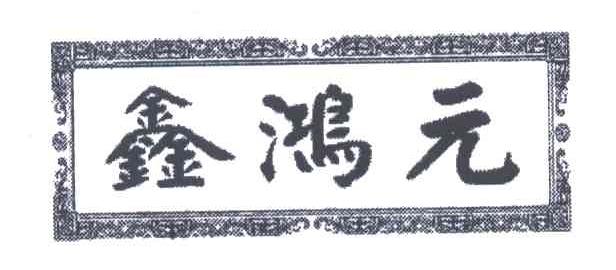 鑫鴻元